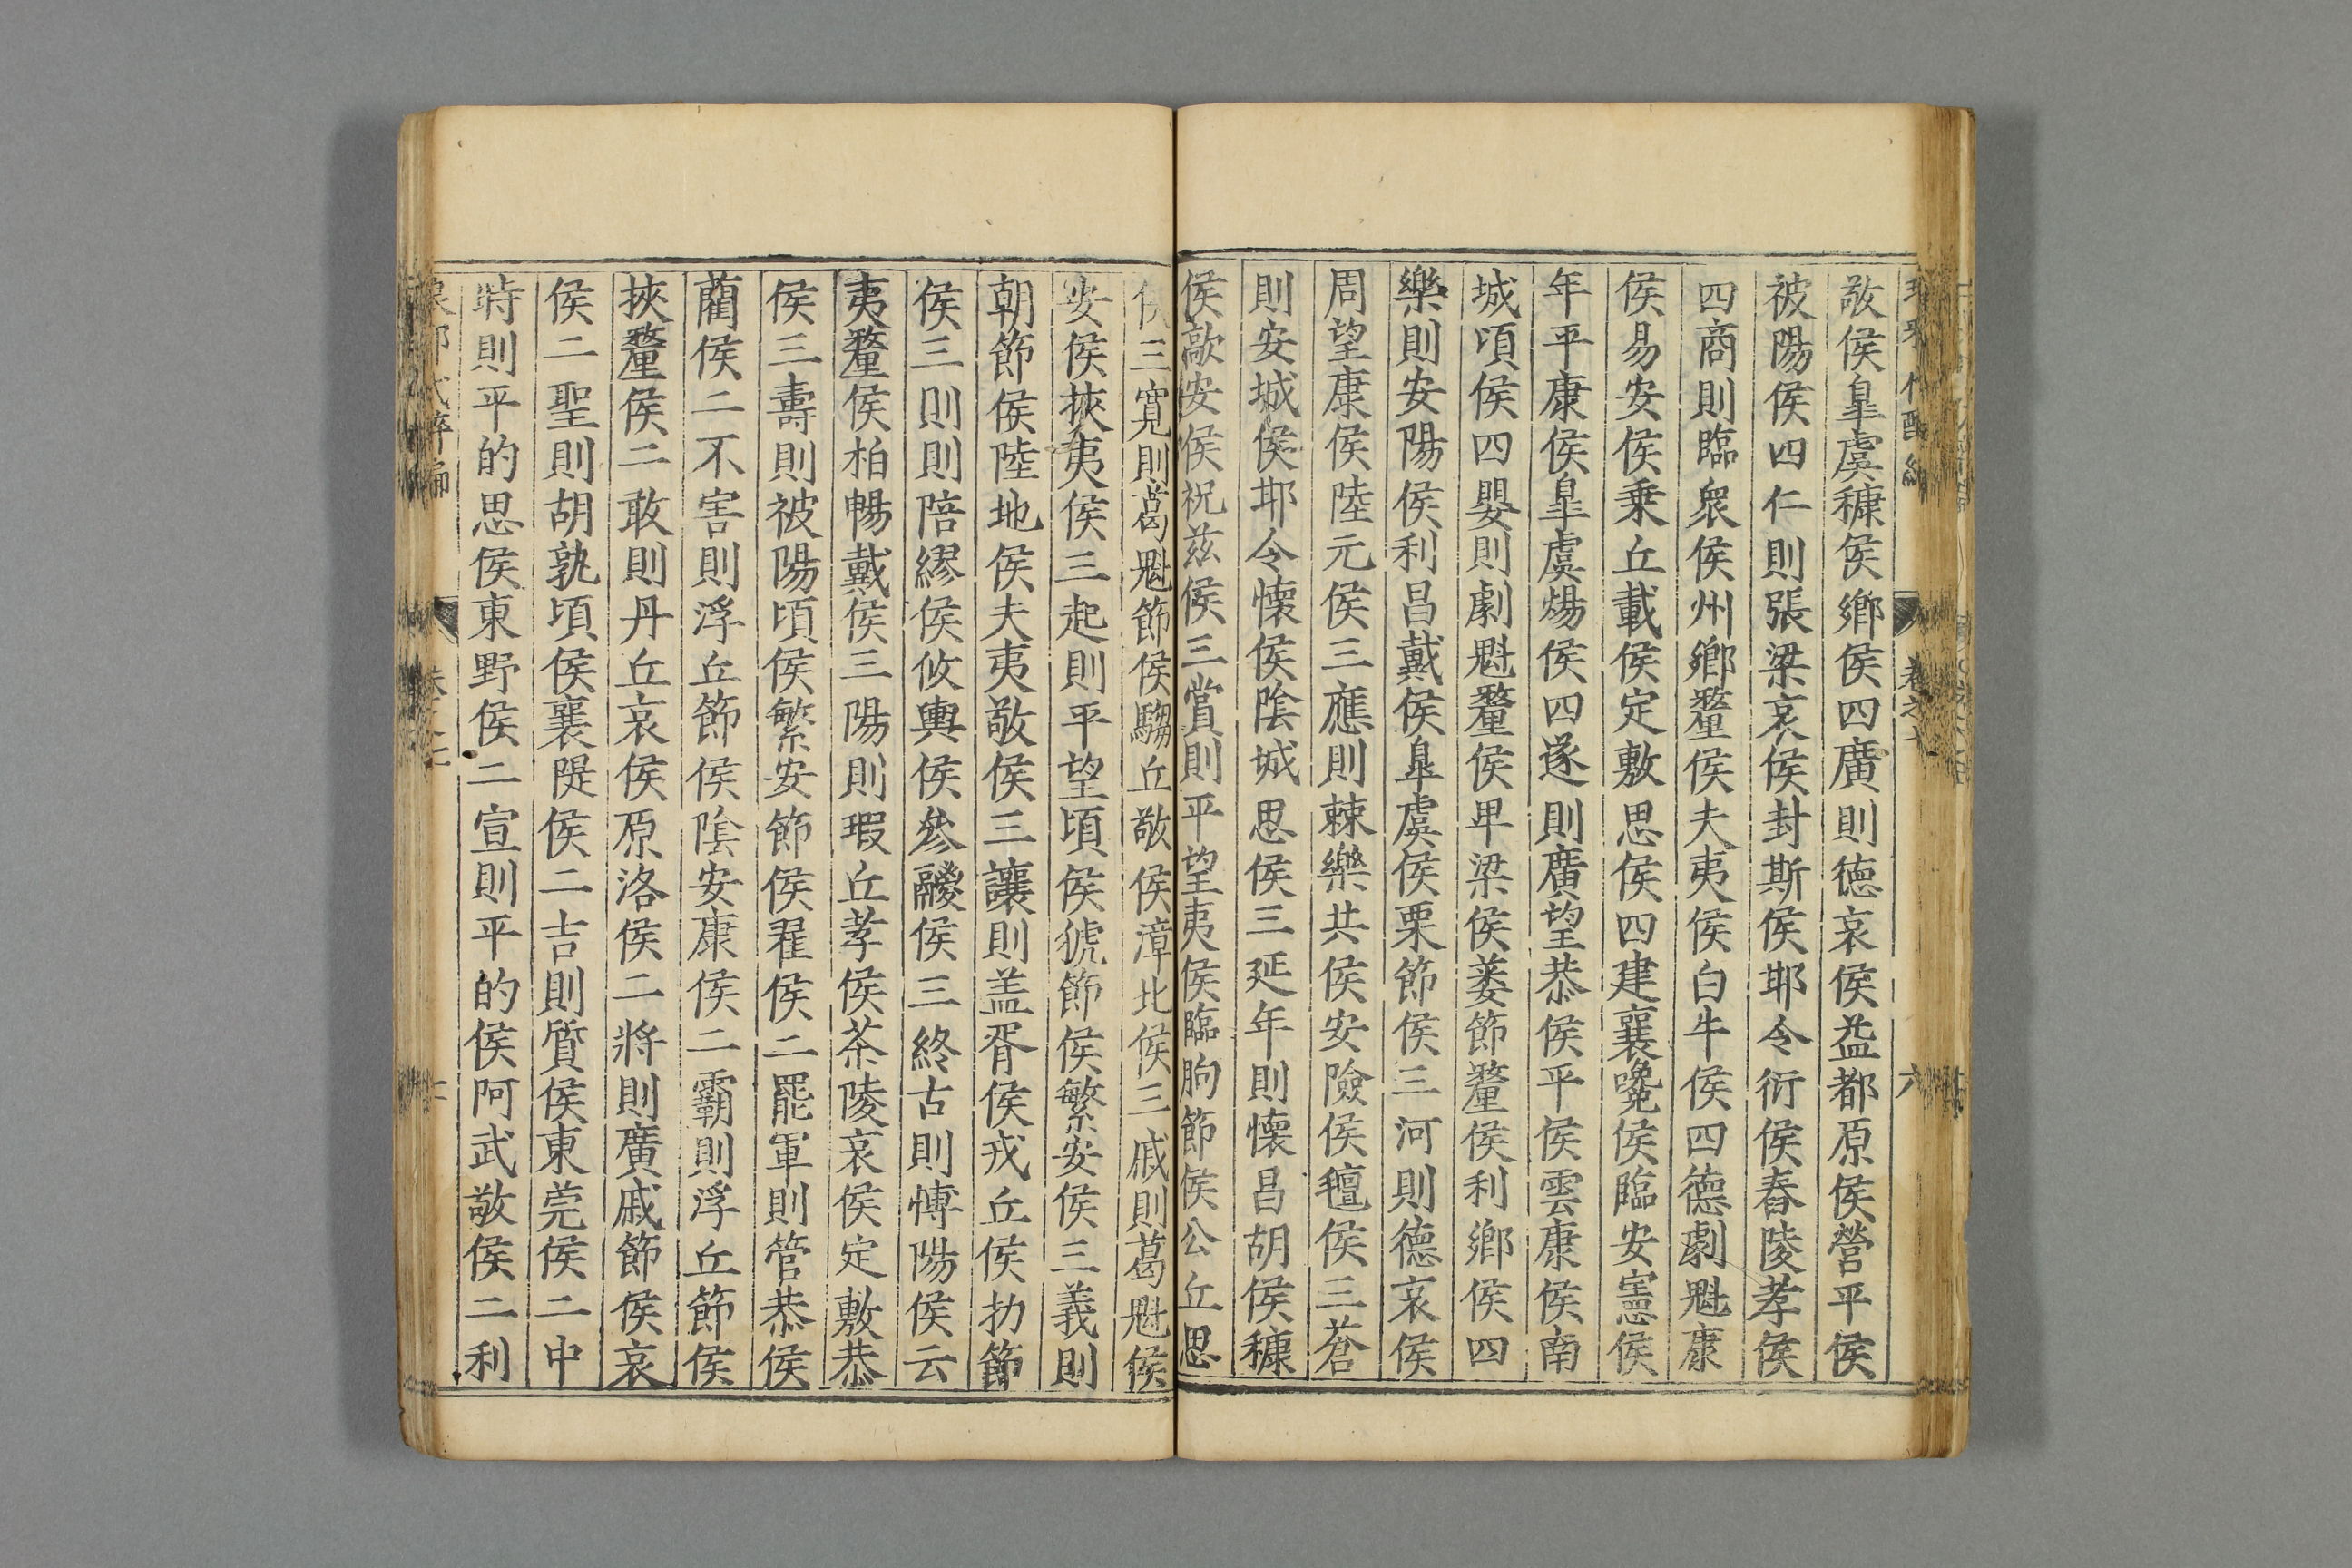 敬侯臯虞穅侯鄉侯四廣則德哀侯益都原侯營平侯
被陽侯四仁則張梁哀侯封斯侯耶令衍侯舂陵孝侯
四商則臨衆侯州鄉釐侯夫夷侯白牛侯四德劇魁康
侯易安侯乗丘載侯定敷思侯四建襄嚵侯臨安憲侯
年平康侯臯虞煬侯四遂則廣望恭侯平侯雲康侯南
城頃侯四嬰則劇魁釐侯畢梁侯蔞節釐侯利鄉侯四
樂則安陽侯利昌戴侯臯虞侯栗節侯三河則德哀侯
周望康侯陸元侯三應則棘樂共侯安險侯氊侯三蒼
則安城侯耶令懷侯陰城思侯三延年則懷昌胡侯穅
侯歊安侯祝兹侯三賞則平望夷侯臨朐節侯公丘思
侯三寛則葛魁節侯騶丘敬侯漳北侯三戚則葛魁侯
安侯挾夷侯三起則平望頃侯猇節侯繁安侯三義則
朝節侯陸地侯夫夷敬侯三讓則盖胥侯戎丘侯扐節
侯三則則陪繆侯攸輿侯參鬷侯三終古則慱陽侯云
夷釐侯柏暢戴侯三陽則瑕丘孝侯茶陵哀侯定敷恭
侯三壽則被陽頃侯繁安節侯翟侯二罷軍則管恭侯
藺侯二不害則浮丘節侯陰安康侯二霸則浮丘節侯
挾釐侯二敢則丹丘哀侯原洛侯二將則廣戚節侯哀
侯二聖則胡孰頃侯襄隄侯二吉則質侯東莞侯二中
時則平的思侯東野侯二宣則平的侯阿武敬侯二利